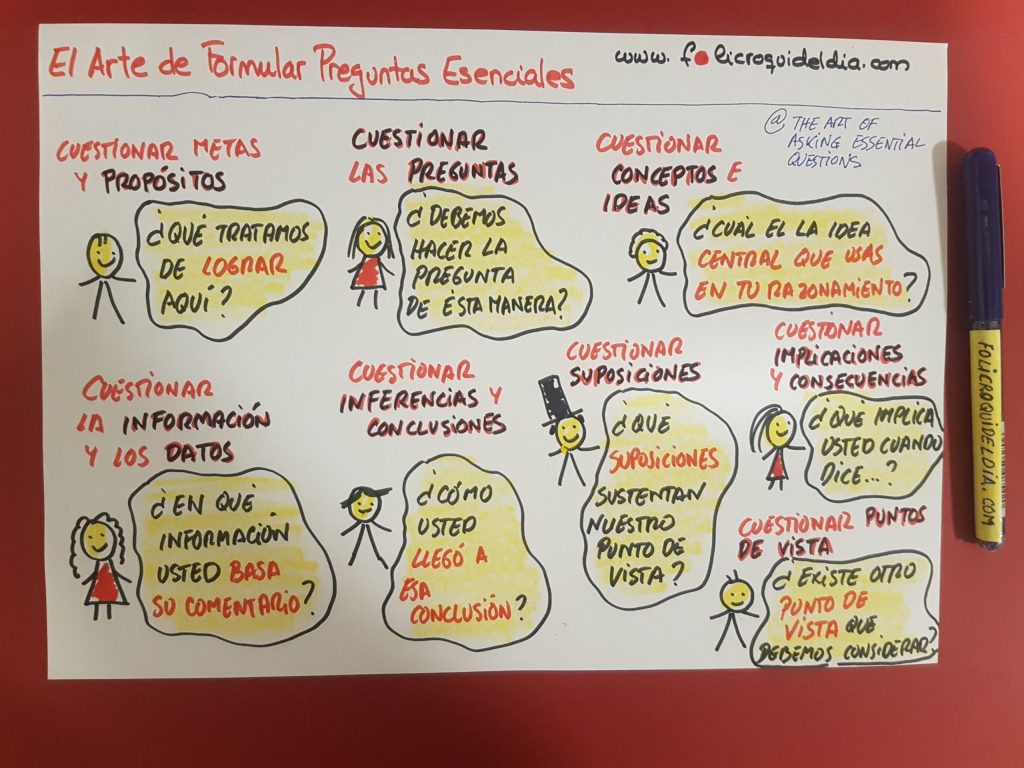 El Arte de Formular Preguntas Esenciales
www.folicroquideldia.com
@ THE ART OF
ASKING ESSENTIAL
QUESTIONS
CUESTIONAR METAS
Y PROPÓSITOS
¿QUÉ TRATAMOS
DE LOGRAR
AQUÍ?
CUESTIONAR
LAS PREGUNTAS
¿DEBEMOS
HACER LA
PREGUNTA
DE ÉSTA MANERA?
CUESTIONAR
CONCEPTOS E
IDEAS
¿CUÁL EL LA IDEA
CENTRAL QUE USAS
EN TU RAZONAMIENTO?
CUESTIONAR
LA INFORMACIÓN
Y LOS DATOS
¿EN QUÉ
INFORMACIÓN
USTED BASA
SU COMENTARIO?
CUESTIONAR
INFERENCIAS Y
CONCLUSIONES
¿CÓMO
USTED
LLEGÓ A
ESA
CONCLUSIÓN?
CUESTIONAR
SUPOSICIONES
¿QUE
SUPOSICIONES
SUSTENTAN
NUESTRO
PUNTO DE
VISTA?
CUESTIONAR
IMPLICACIONES
Y CONSECUENCIAS
¿QUÉ IMPLICA
USTED CUANDO
DICE...?
CUESTIONAR PUNTOS
DE VISTA
¿EXISTE OTRO
PUNTO DE
VISTA QUE
DEBEMOS CONSIDERAR?
FOLICROQUIDELDIA.COM